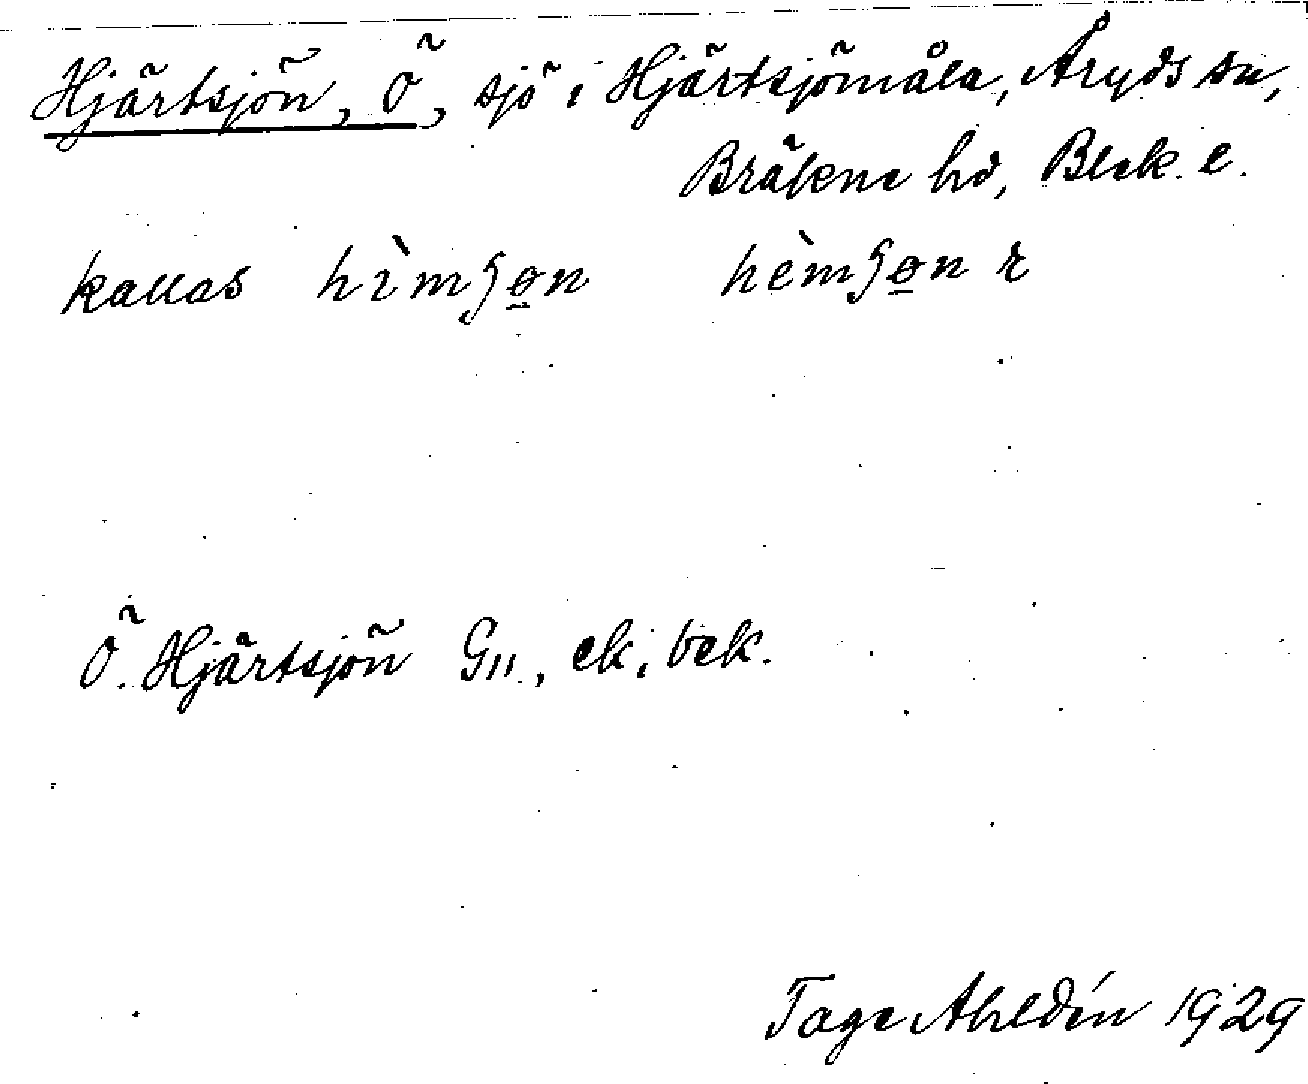 Hjärtsjön, Ö, sjö i Hjärtsjömåla, Åryds sn,
Bräkne hd, Blek. l.
kallas hìmʃøn hèmʃøn r
Ö. Hjärtsjön Gll., ek, bek.
Tage Ahldén 1929